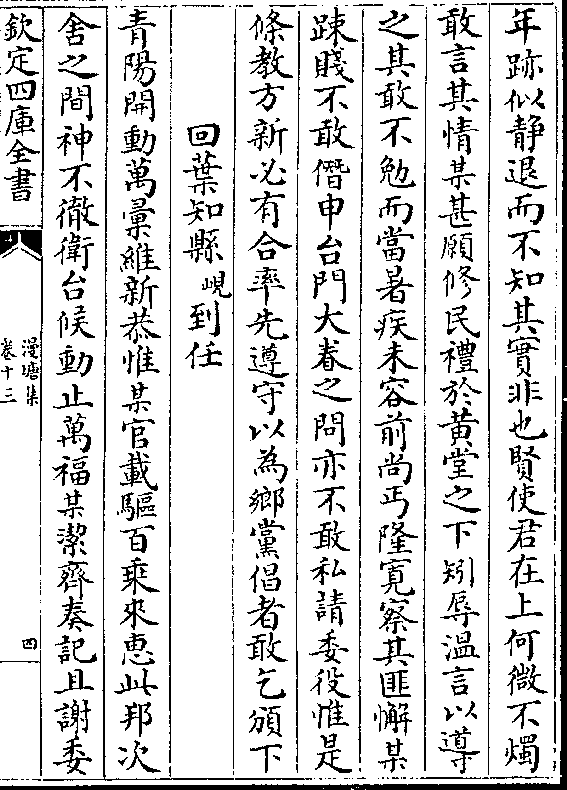 年跡似静退而不知其實非也賢使君在上何微不燭
敢言其情某甚願修民禮於黄堂之下矧辱温言以導
之其敢不勉而當暑疾未容前尚丐隆寛察其匪懈某
踈賤不敢僭申台門大眷之問亦不敢私請委役惟是
條教方新必有合率先遵守以為鄉黨倡者敢乞頒下
回葉知縣峴到任
青陽開動萬彙維新恭惟某官載驅百乘來恵此邦次
舍之間神不徹衛台候動止萬福某潔齊奏記且謝委
欽定四庫全書
漫塘集
卷十三
四